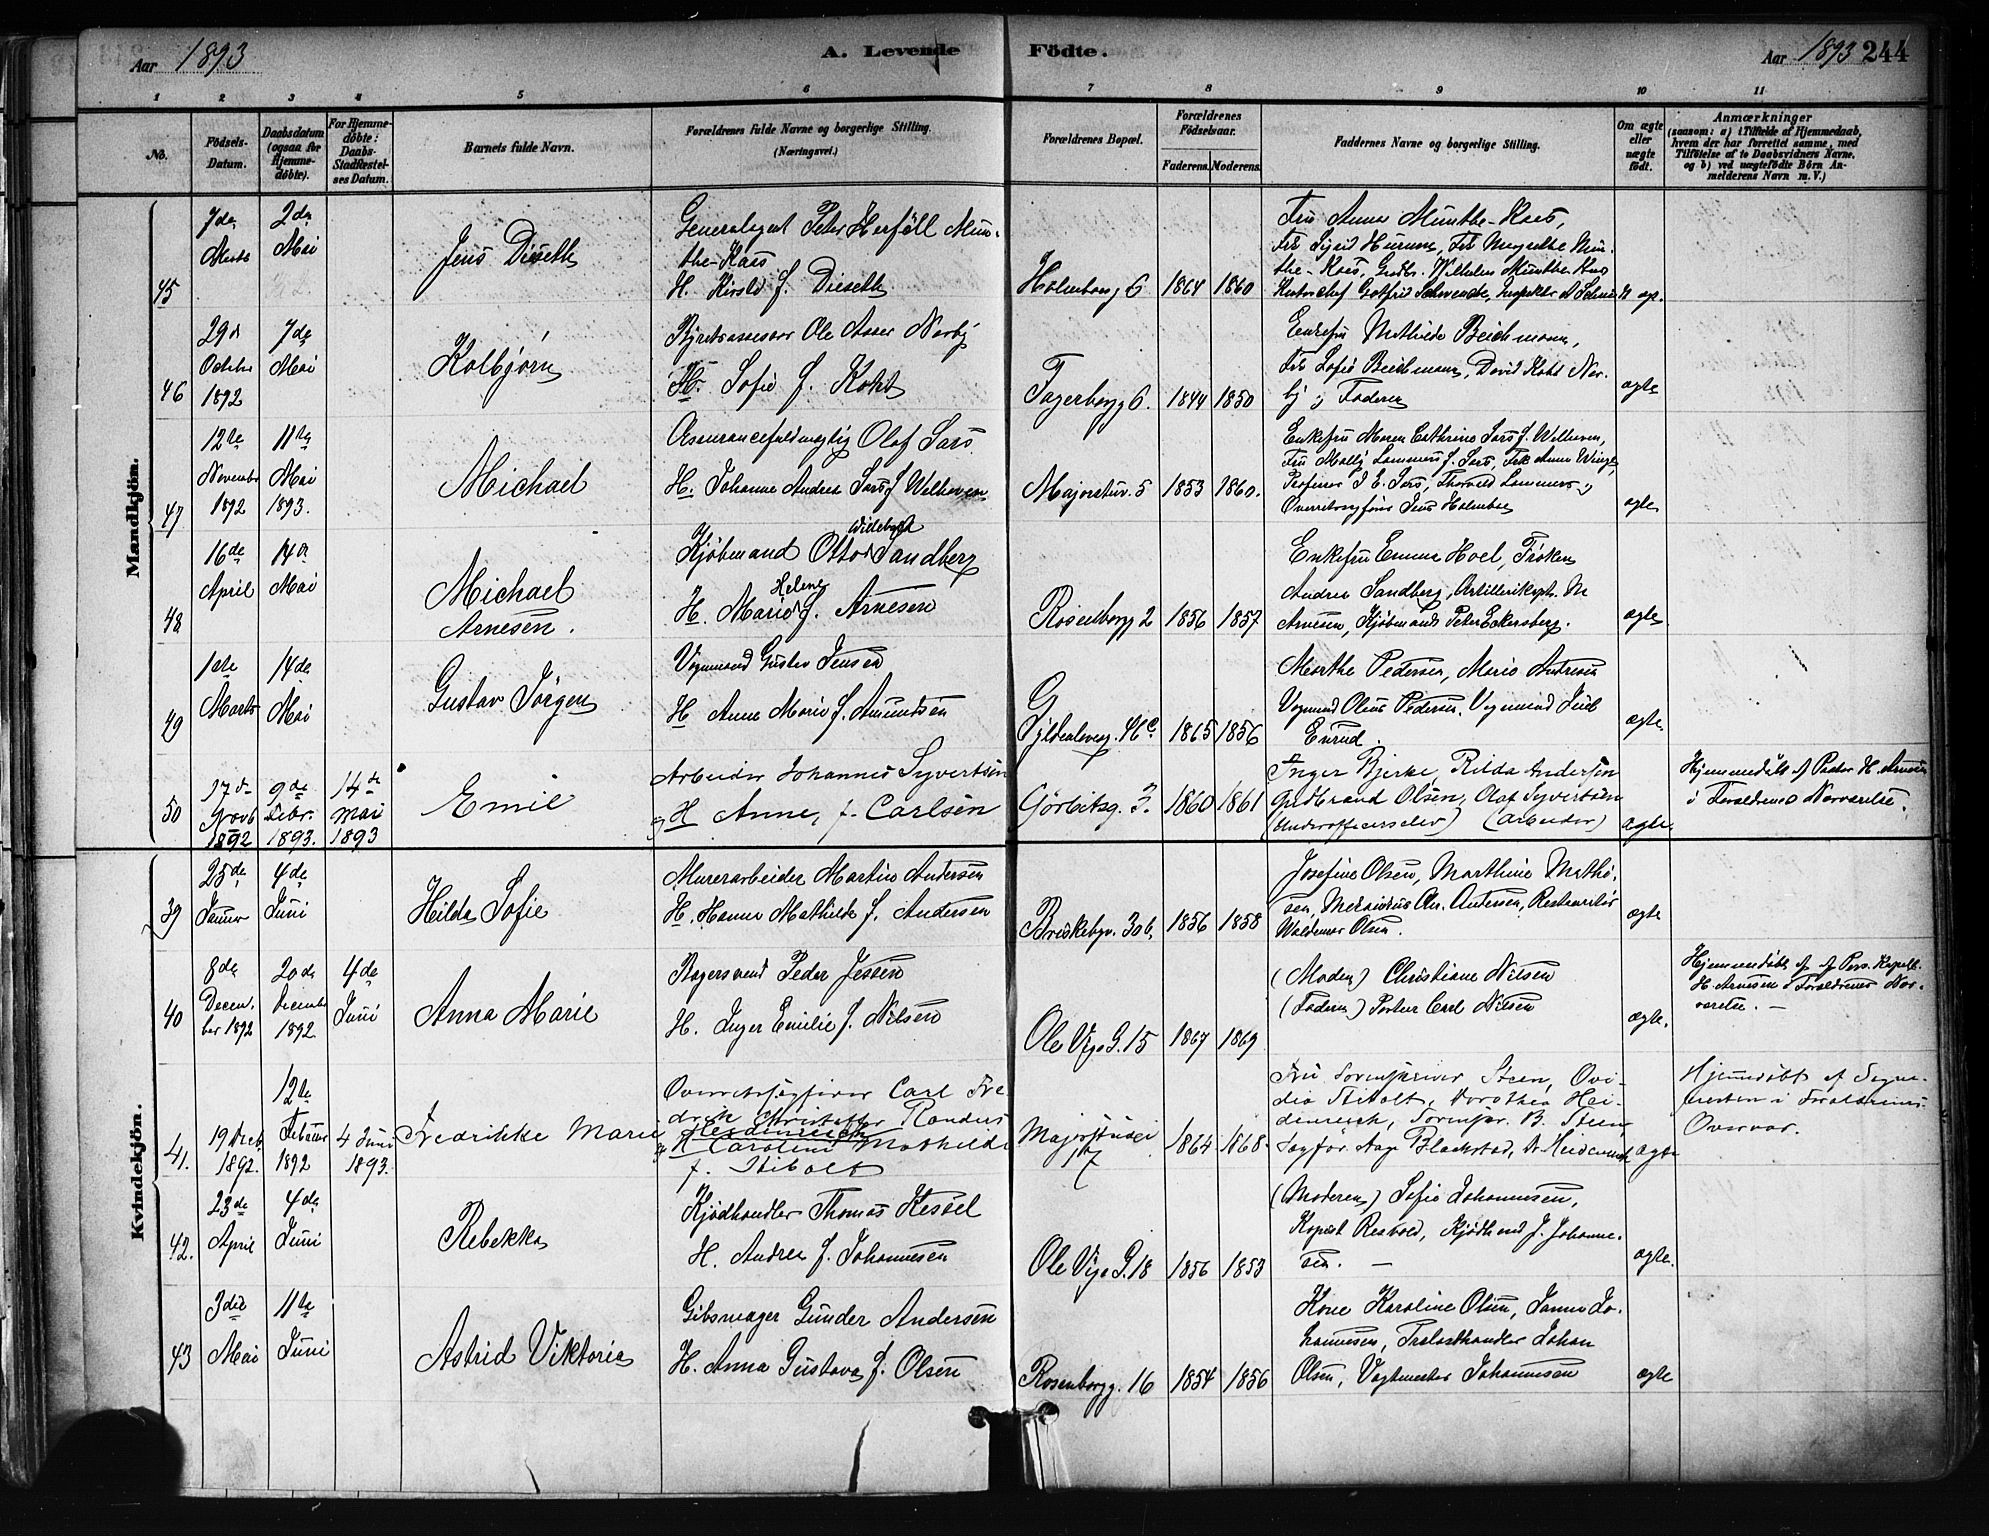 Aar 1893
A. Levende Födte.
Aar 1893 244
1 2 3 4 5 6 7 8 9 10 11
No.
Födsels-Datum.
Daabsdatum (ogsaa for Hjemme-döbte).
For Hjemme-döbte: Daabs-Stadfæstel-ses Datum.
Barnets fulde Navn.
Forældrenes fulde Navne og borgerlige Stilling. (Næringsvei.)
Forældrenes Bopæl.
Forældrenes Födselsaar.
Faderens. Moderens.
Faddernes Navne og borgerlige Stilling.
Om ægte eller uægte födt.
Anmærkninger
(saasom: a) i Tilfælde af Hjemmedaab, hvem der har forrettet samme, med Tilföielse af to Daabsvidners Navne, og b) ved uægtefödte Börn An-melderens Navn m. V.)
Mandkjön.
45
7de Marts
2den Mai
Jens Dieseth
Generalagent Peter Herföll Mun-
the-Kaas
H. f. Dieseth
Holmborg 6
1864 1860
Fru Anna Munthe-Kaas,
Frk Sigrid Hurum, Frk Magrethe Mun-
the-Kaas, Wilhelm Munthe Kaas
46
29d October 1892
7de Mai
Kolbjörn
Byretsassessor Ole Asser Norby
H. Sofie f. Koht
Fagerborgg 6.
1844 1850
Enkefru Mathilde Beichmann,
Frk Sofie Beichmann, David Koht Nor-
by, Faderen
ægte
47
12te November 1892
11te Mai 1893.
Michael
Assurancefuldmægtig Olaf Sars
H. Johanne Andrea Sars f. Welhaven
Majorstuv. 5
1853 1860.
Enkefru Maren Cathrine Sars f. Welhaven,
Fru Mally Lammers f. Sars, Frk Anna Winge,
Professor J. E. Sars, Thorvald Lammers
Overretssagförer Jens Holmboe
ægte
48
16de April
14d Mai
Michael
Arnesen.
Kjöbmand Otto Sandberg
H. Marie Helene f. Arnesen
Rosenborgg 2
1856 1857
Enkefru Emma Hoel, Fröken
Andrea Sandberg, Artillerikapt. M
Arnesen, Kjöbmand Peter Eckersberg.
ægte
49
1ste Marts
14de Mai
Gustav Jörgen
Vognmand Gustav Jensen
H Anne Marie f. Amundsen
1865 1856
Marthe Pedersen, Marie Andresen
Vognmand Olaus Pedersen, Vognmand Juul
Enrud.
ægte.
50
17d Novb 1892
9de Febr. 1893.
14de Mai 1893
Emil
Arbeider Johannes Syvertsen
og H Anne, f. Carlsen
Görbitsg. 3.
1860 1861
Inger Bjerke, Rilda Andersen
Gudbrand Olsen, Olaf Syvertsen
(Underofficerselev) (Arbeider)
ægte.
Hjemmedöbt af Pastor H. Arnesen
i Forældrenes Nærværelse.
Kvindekjön.
39
25de Januar
4de Juni
Hilda Sofie
Murerarbeider Martin Andersen
H. Hanna Mathilde f. Andersen
Briskebyv. 30b,
1856 1858
Josefine Olsen, Marthine Mathi-
sen, Chr. Andersen, Restauratör
Waldemar Olsen.
ægte
40
8de Decem-ber 1892
20de December 1892
4de Juni
Anna Marie
Bagersvend Peder Jessen
H. Inger Emilie f. Nilsen
Ole Vigs G. 15
1867 1869
(Moderen) Christiane Nilsen
(Faderen) Portner Carl Nilsen
ægte.
Hjemmedöbt af Pers. Kapell.
H. Arnesen i Forældrenes Nær-
værelse. —
41.
19 Decb. 1892.
12te Februar 1892
4 Juni 1893.
Fredrikke Marie
Overretssagförer Carl Fre
drik Christoffer Randers
og H Caroline Mathilde
f. Stibolt
Majorstuvei 17
1864 1868
Fru Sorenskriver Steen, Ovi-
dia Stibolt, Dorothea Hei-
denreich, Sorenskr. B. Steen,
Sagför. Aage Blackstad, Heidenreich
ægte
Hjemmedöbt af Sogne-
presten i Forældrenes
Overvær.
42.
23de April
4de Juni
Rebekka
Kjödhandler Thomas Kessel
H. Andrea f. Johannesen
Ole Vigs G. 18
1856 1853
(Moderen) Sofie Johannesen,
Kopist Restvold, Kjödhand J. Johanne-
sen. —
ægte.
43
3die Mai
11te Juni
Astrid Viktoria
Gibsmager Gunder Andersen
H. Anna Gustava f. Olsen
Rosenborgg. 16
1854 1856
Kone Karoline Olsen, Janna Jo-
hannesen, Trælasthandler Johan
Olsen, Vagtmester Johannesen
ægte